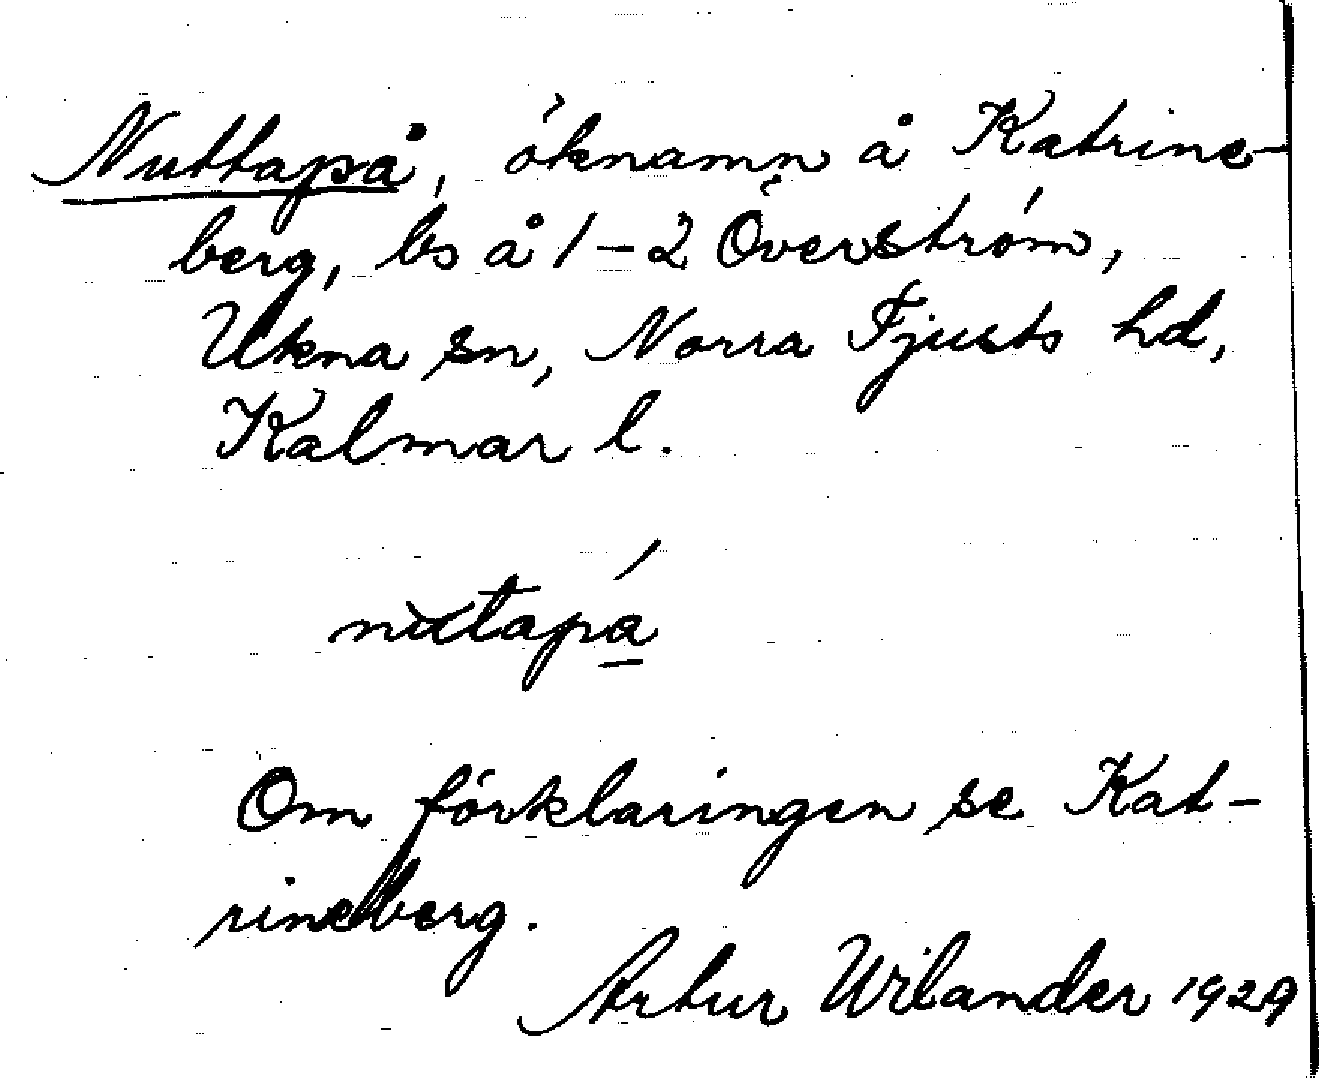 Nuttapå, öknamn å Katrine-
berg, ls å 1-2 Överström,
Ukna sn, Norra Tjusts hd,
Kalmar l.
Om förklaringen se Kat-
rineberg.
Artur Wilander 1929